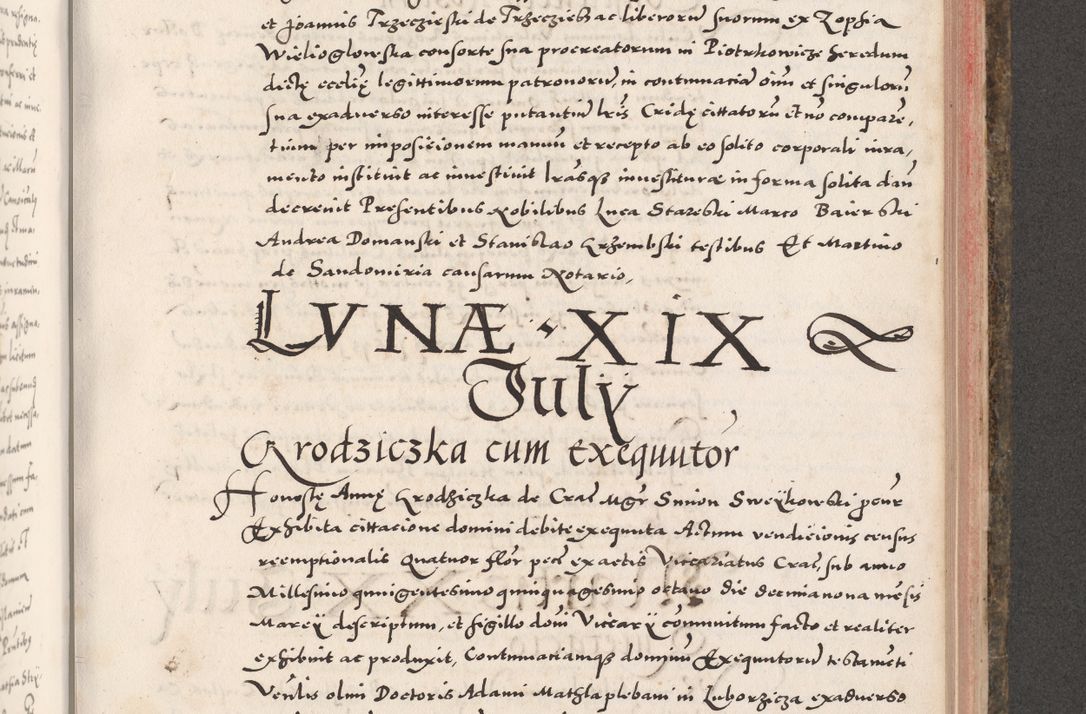 et Joannis Trzeczieski de Trzeczieb ac liberorum suorum ex Zophia
Wielioglowska consorte sua procreatorum in Piotrkowicze heredum
dictę ecclię legittimorum patronorum, in contumacia oim et singulorum
sua exadverso interesse putantium lris Cridę cittatorum et no compare,
tium per imposicionem manuum et recepto ab eo solito corporali iura,
mento instituit ac investivit lrasque investiturae in forma solita dari
decrevit Presentibus Nobilibus Luca Stareski Marco Baier ski
Andrea Domanski et Stanislao Grzembski testibus Et Martino
de Sandomiria causarum Notario,
LVNÆ · XIX
Julÿ
Grodziczka cum exequutor
Honestę Annę Grodziczka de Crac Mgr Simon Sweykowski pcur
Exhibita cittacione domini debite exequuta Actum vendicionis census
reemptionalis Quatuor flor pecc ex actis Vicariatus Crac, sub anno
Millesimo quingentesimo quinquagesimo octavo die decimanona mesis
Marcÿ descriptum, et sigillo domi Vicarÿ communitum facto et realiter
exhibuit ac produxit, Contumaciamque dominorum Exequutorum testamenti
Venlis olim Doctoris Adami Mathla plebani in Luborzicza exadverso